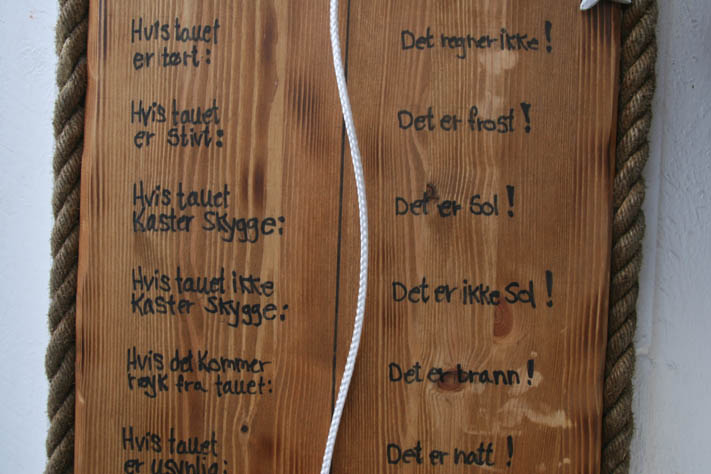 Hvis tauet
er tørt:
Det regner ikke!
Hvis tauet
er Stivt:
Det er frost!
Hvis tauet
Kaster Skygge:
Det er Sol!
Hvis tauet ikke
Kaster Skygge:
Det er ikke Sol!
Hvis det Kommer
røyk fra tauet:
Det er brann!
Hvis tauet
er usynlig:
Det er natt!